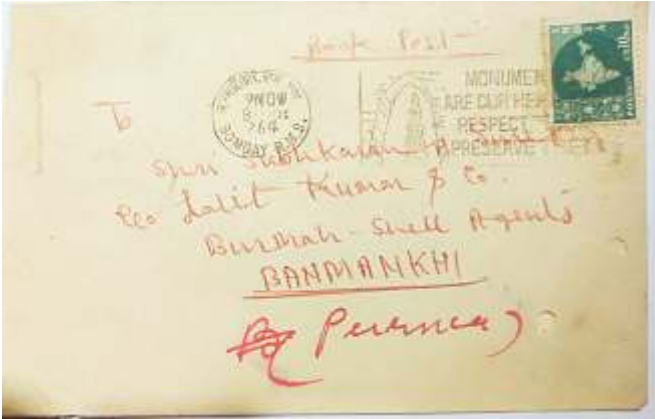 Book Post
BOMBAY R.M.S.
MONUMEN
ARE OUR HE
RESPECT
PRESERVE
To
Shri Subhkaran
c/o Lalit Kumar & Co.
Burmah-Shell Agents
BANMANKHI
Purnea)